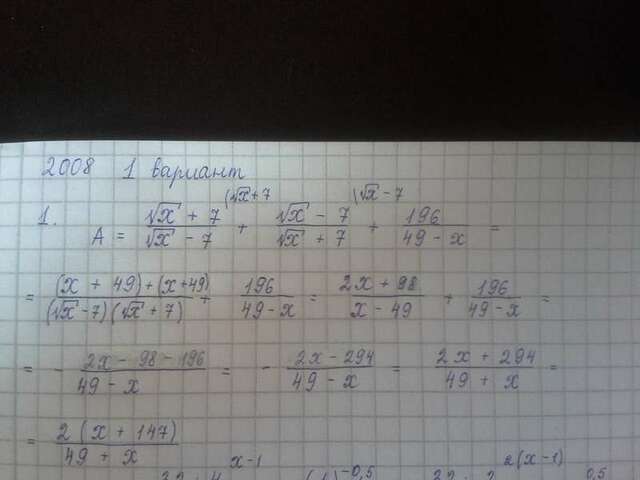 2008 1 вариант
1. A = (√x + 7)/(√x - 7) (√x+7 + (√x - 7)/(√x + 7) (√x - 7 + 196/(49 - x) =
= ((x + 49) + (x+49))/((√x - 7)(√x + 7)) + 196/(49 - x) = (2x + 98)/(x - 49) + 196/(49 - x) =
= - (2x - 98 - 196)/(49 - x) = - (2x - 294)/(49 - x) = (2x + 294)/(49 + x) =
= 2(x + 147)/(49 + x)
x-1 -0,5 2(x-1) 0,5